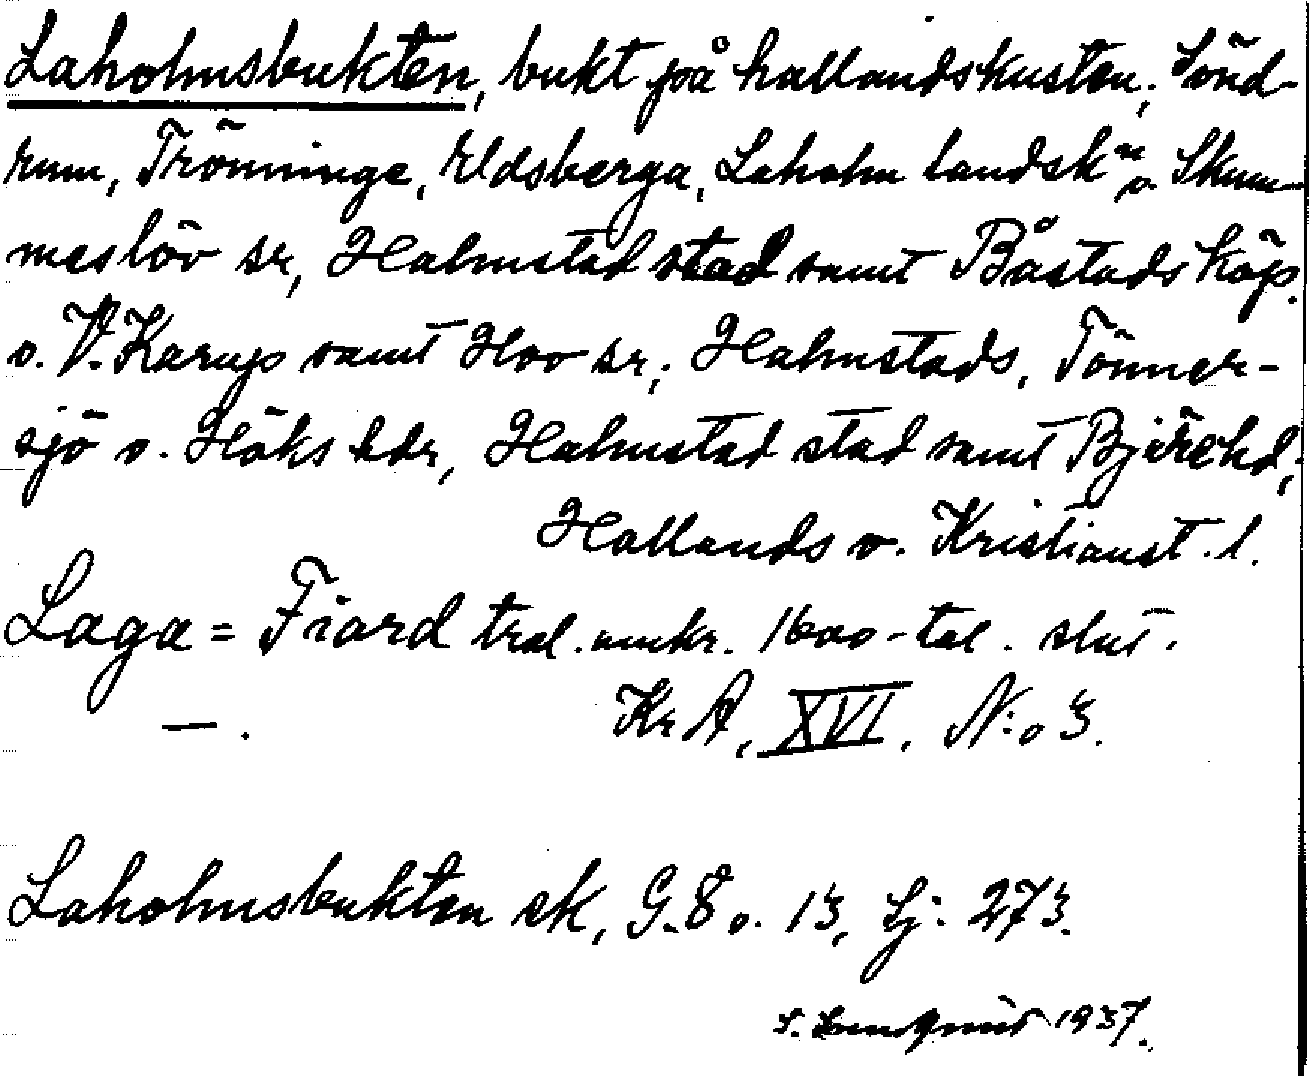 Laholmsbukten, bukt på hallandskusten; Sönd-
rum, Trönninge, Eldsberga, Laholm landsk:n o. Skum-
meslöv sr, Halmstad stad samt Båstads köp.
o. V. Karup samt Hov sr; Halmstads, Tönner-
sjö o. Höks hdr, Halmstad stad samt Bjäre hd;
Hallands o. Kristianst. l.
Laga = Fiard tral. omkr. 1600-tal. slut.
—. KrA, XVI, N:o 3.
Laholmsbukten ek, G. 8 o. 13, Sj: 273.
S. Lundqvist 1937.